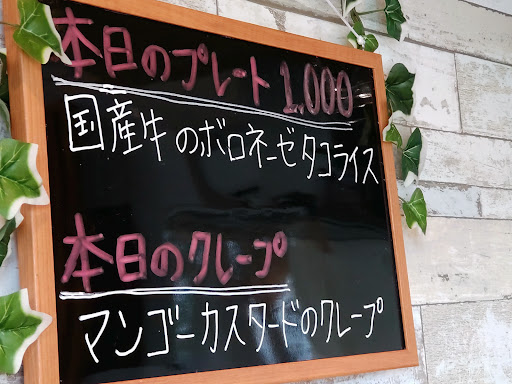 本日のプレート 1,000
国産牛のボロネーゼタコライス
本日のクレープ
マンゴーカスタードのクレープ